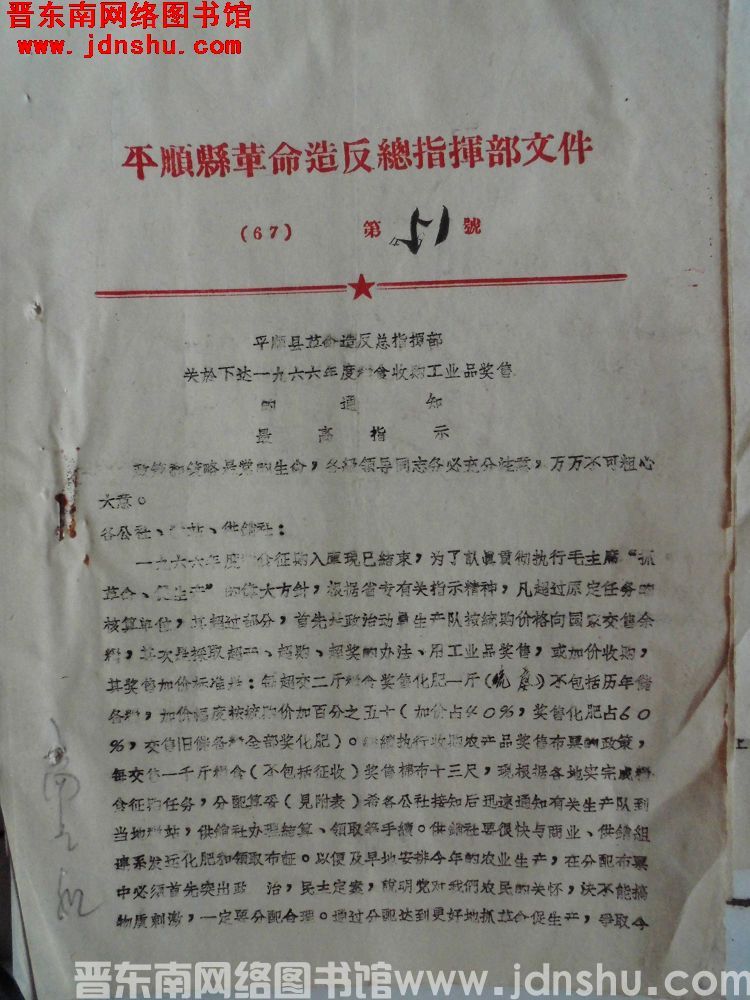 晋东南网络图书馆
www.jdnshu.com
平順縣革命造反總指揮部文件
(67) 第 51 號
平顺县革命造反总指揮部
关於下达一九六六年度粮食收购工业品奖售
的通知
最高指示
政策和策略是党的生命，各级领导同志务必充分注意，万万不可粗心
大意。
各公社、粮站、供銷社：
一九六六年度粮食征购入庫现已結束，为了認眞貫彻执行毛主席“抓
革命、促生产”的偉大方針，根据省专有关指示精神，凡超过原定任务的
核算单位，其超过部分，首先是政治动員生产队按統购价格向国家交售余
粮，其次是採取超产、超购、超奖的办法、用工业品奖售，或加价收购，
其奖售加价标准是：每超交二斤粮食奖售化肥一斤()不包括历年儲
备粮，加价幅度按統购价加百分之五十（加价占40%，奖售化肥占60
%，交售旧儲备粮全部奖化肥）。継續执行收购农产品奖售布票的政策，
每交售一千斤粮食（不包括征收）奖售棉布十三尺，現根据各地实完成粮
食征购任务，分配算咨（見附表）希各公社接知后迅速通知有关生产队到
当地粮站，供銷社办理結算、領取等手續。供銷社要很快与商业、供銷組
連系发运化肥和領取布証。以便及早地安排今年的农业生产，在分配布票
中必須首先突出政 治，民主定案，說明党对我們农民的关怀，决不能搞
物质刺激，一定要分配合理。通过分配达到更好地抓革命促生产，爭取今
晋东南网络图书馆www.jdnshu.com